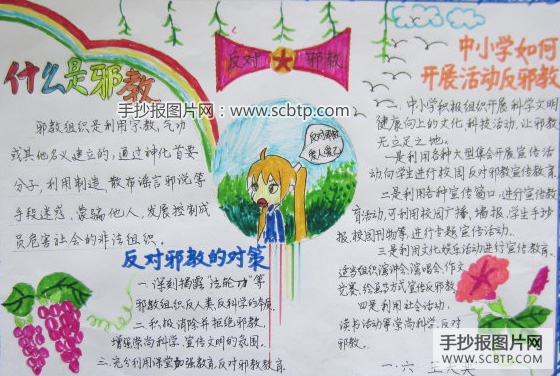 什么是邪教
邪教组织是利用宗教,气功
或其他名义建立的,通过神化首要
分子,利用制造,散布谣言邪说等
手段迷惑,蒙骗他人,发展控制成
员危害社会的非法组织。
反对 邪教
反对邪教
手抄报图片网:www.scbtp.com
反对邪教的对策
一.深刻揭露“法轮功”等
邪教组织反人类,反科学的本质.
二.积极消除并拒绝邪教,
增强崇尚科学,宣传文明的氛围。
三.充分利用课堂加强教育,反对邪教教育
中小学如何
开展活动反邪教
一、中小学积极组织开展科学文明
健康向上的文化科技活动,让邪教
无立足之地。
一是利用各种大型集会开展宣传活
动向学生进行校园反对邪教宣传教育.
二是利用各种宣传窗口,进行宣传教
育活动,可利用校园广播,墙报,学生手抄
报,校园刊物等,进行专题宣传活动.
三是利用文化娱乐活动进行宣传教育.
适当组织演讲会,演唱会,作文
竞赛,绘画等方式宣传反邪教.
四是利用社会活动,
读书活动等崇尚科学,反对
邪教。
一.六
手抄报图片网
WWW.SCBTP.COM